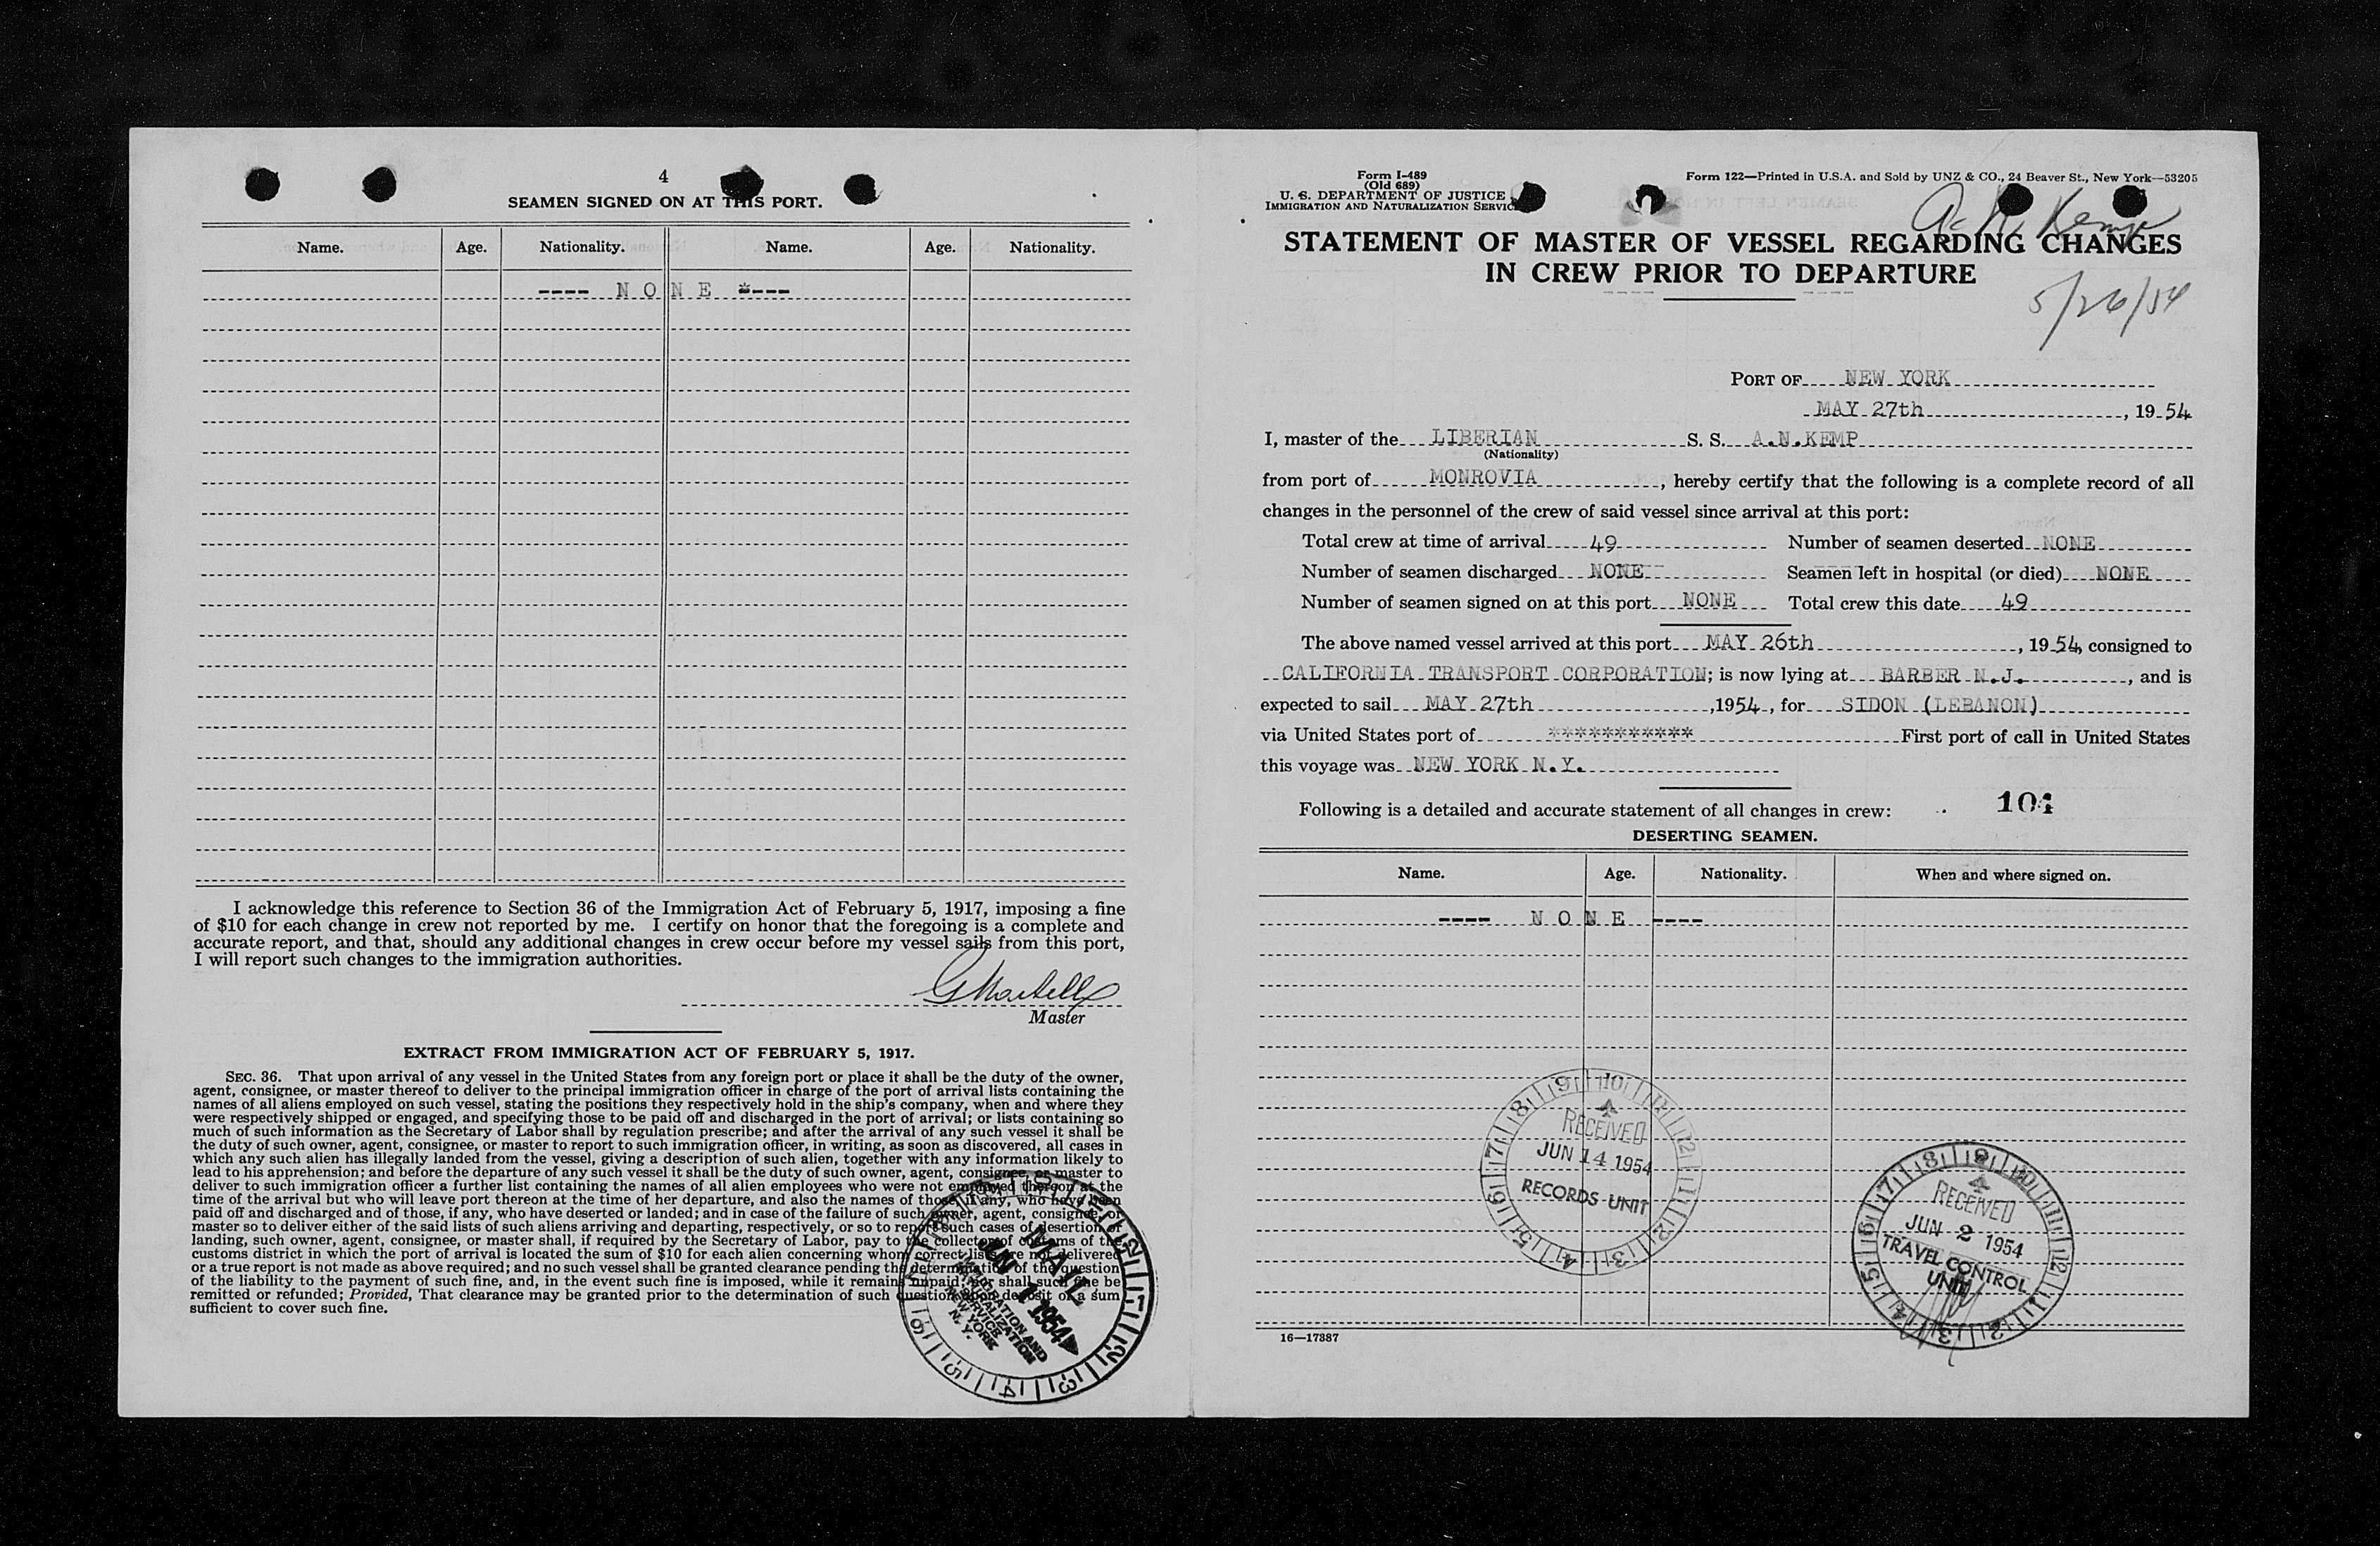 4
SEAMEN SIGNED ON AT THIS PORT.
Name. Age. Nationality. Name. Age. Nationality.
---- N O N E *---
I acknowledge this reference to Section 36 of the Immigration Act of February 5, 1917, imposing a fine
of $10 for each change in crew not reported by me. I certify on honor that the foregoing is a complete and
accurate report, and that, should any additional changes in crew occur before my vessel sails from this port,
I will report such changes to the immigration authorities.
Master
EXTRACT FROM IMMIGRATION ACT OF FEBRUARY 5, 1917.
SEC. 36. That upon arrival of any vessel in the United States from any foreign port or place it shall be the duty of the owner,
agent, consignee, or master thereof to deliver to the principal immigration officer in charge of the port of arrival lists containing the
names of all aliens employed on such vessel, stating the positions they respectively hold in the ship's company, when and where they
were respectively shipped or engaged, and specifying those to be paid off and discharged in the port of arrival; or lists containing so
much of such information as the Secretary of Labor shall by regulation prescribe; and after the arrival of any such vessel it shall be
the duty of such owner, agent, consignee, or master to report to such immigration officer, in writing, as soon as discovered, all cases in
which any such alien has illegally landed from the vessel, giving a description of such alien, together with any information likely to
lead to his apprehension; and before the departure of any such vessel it shall be the duty of such owner, agent, consignee, or master to
deliver to such immigration officer a further list containing the names of all alien employees who were not employed thereon at the
time of the arrival but who will leave port thereon at the time of her departure, and also the names of those, if any, who have been
paid off and discharged and of those, if any, who have deserted or landed; and in case of the failure of such owner, agent, consignee, or
master so to deliver either of the said lists of such aliens arriving and departing, respectively, or so to report such cases of desertion or
landing, such owner, agent, consignee, or master shall, if required by the Secretary of Labor, pay to the collector of customs of the
customs district in which the port of arrival is located the sum of $10 for each alien concerning whom correct lists are not delivered
or a true report is not made as above required; and no such vessel shall be granted clearance pending the determination of the question
of the liability to the payment of such fine, and, in the event such fine is imposed, while it remains unpaid; nor shall such fine be
remitted or refunded; Provided, That clearance may be granted prior to the determination of such question upon deposit of a sum
sufficient to cover such fine.
MAIL
JUN 1 1954
IMMIGRATION AND
NATURALIZATION
SERVICE
NEW YORK
N. Y.
Form I-489
(Old 689)
U. S. DEPARTMENT OF JUSTICE
IMMIGRATION AND NATURALIZATION SERVICE
Form 122—Printed in U.S.A. and Sold by UNZ & CO., 24 Beaver St., New York—53205
A. N. Kemp
STATEMENT OF MASTER OF VESSEL REGARDING CHANGES
IN CREW PRIOR TO DEPARTURE
5/26/54
PORT OF NEW YORK
MAY 27th, 19 54
I, master of the LIBERIAN S. S. A.N.KEMP
(Nationality)
from port of MONROVIA, hereby certify that the following is a complete record of all
changes in the personnel of the crew of said vessel since arrival at this port:
Total crew at time of arrival 49 Number of seamen deserted NONE
Number of seamen discharged NONE Seamen left in hospital (or died) NONE
Number of seamen signed on at this port NONE Total crew this date 49
The above named vessel arrived at this port MAY 26th, 19 54, consigned to
CALIFORNIA TRANSPORT CORPORATION; is now lying at BARBER N.J., and is
expected to sail MAY 27th, 1954, for SIDON (LEBANON)
via United States port of *********** First port of call in United States
this voyage was NEW YORK N.Y.
Following is a detailed and accurate statement of all changes in crew:
DESERTING SEAMEN.
Name. Age. Nationality. When and where signed on.
---- N O N E ----
RECEIVED
JUN 14 1954
RECORDS UNIT
RECEIVED
JUN 2 1954
TRAVEL CONTROL
UNIT
16—17387